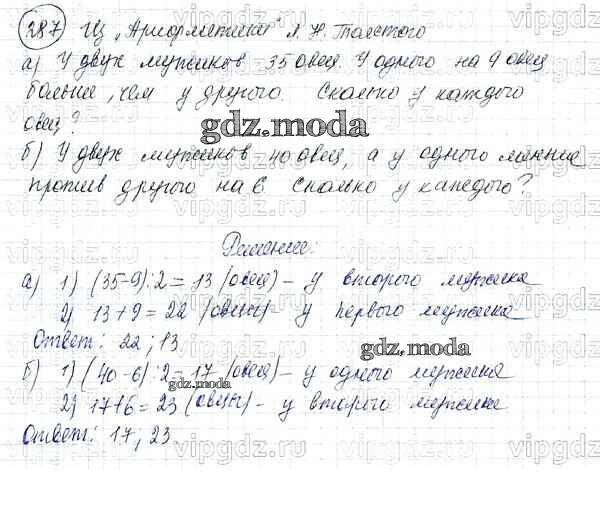 287 Из „Арифметики" Л. Н. Толстого
а) У двух мужиков 35 овец. У одного на 9 овец
больше, чем у другого. Сколько у каждого
овец?
gdz.moda
б) У двух мужиков 40 овец, а у одного меньше
против другого на 6. Сколько у каждого?
Решение:
а) 1) (35-9):2 = 13 (овец) - у второго мужика
2) 13+9 = 22 (овцы) - у первого мужика
Ответ: 22; 13
gdz.moda
б) 1) (40-6):2 = 17 (овец) - у одного мужика
gdz.moda
2) 17+6 = 23 (овцы) - у второго мужика
Ответ: 17; 23
vipgdz.ru